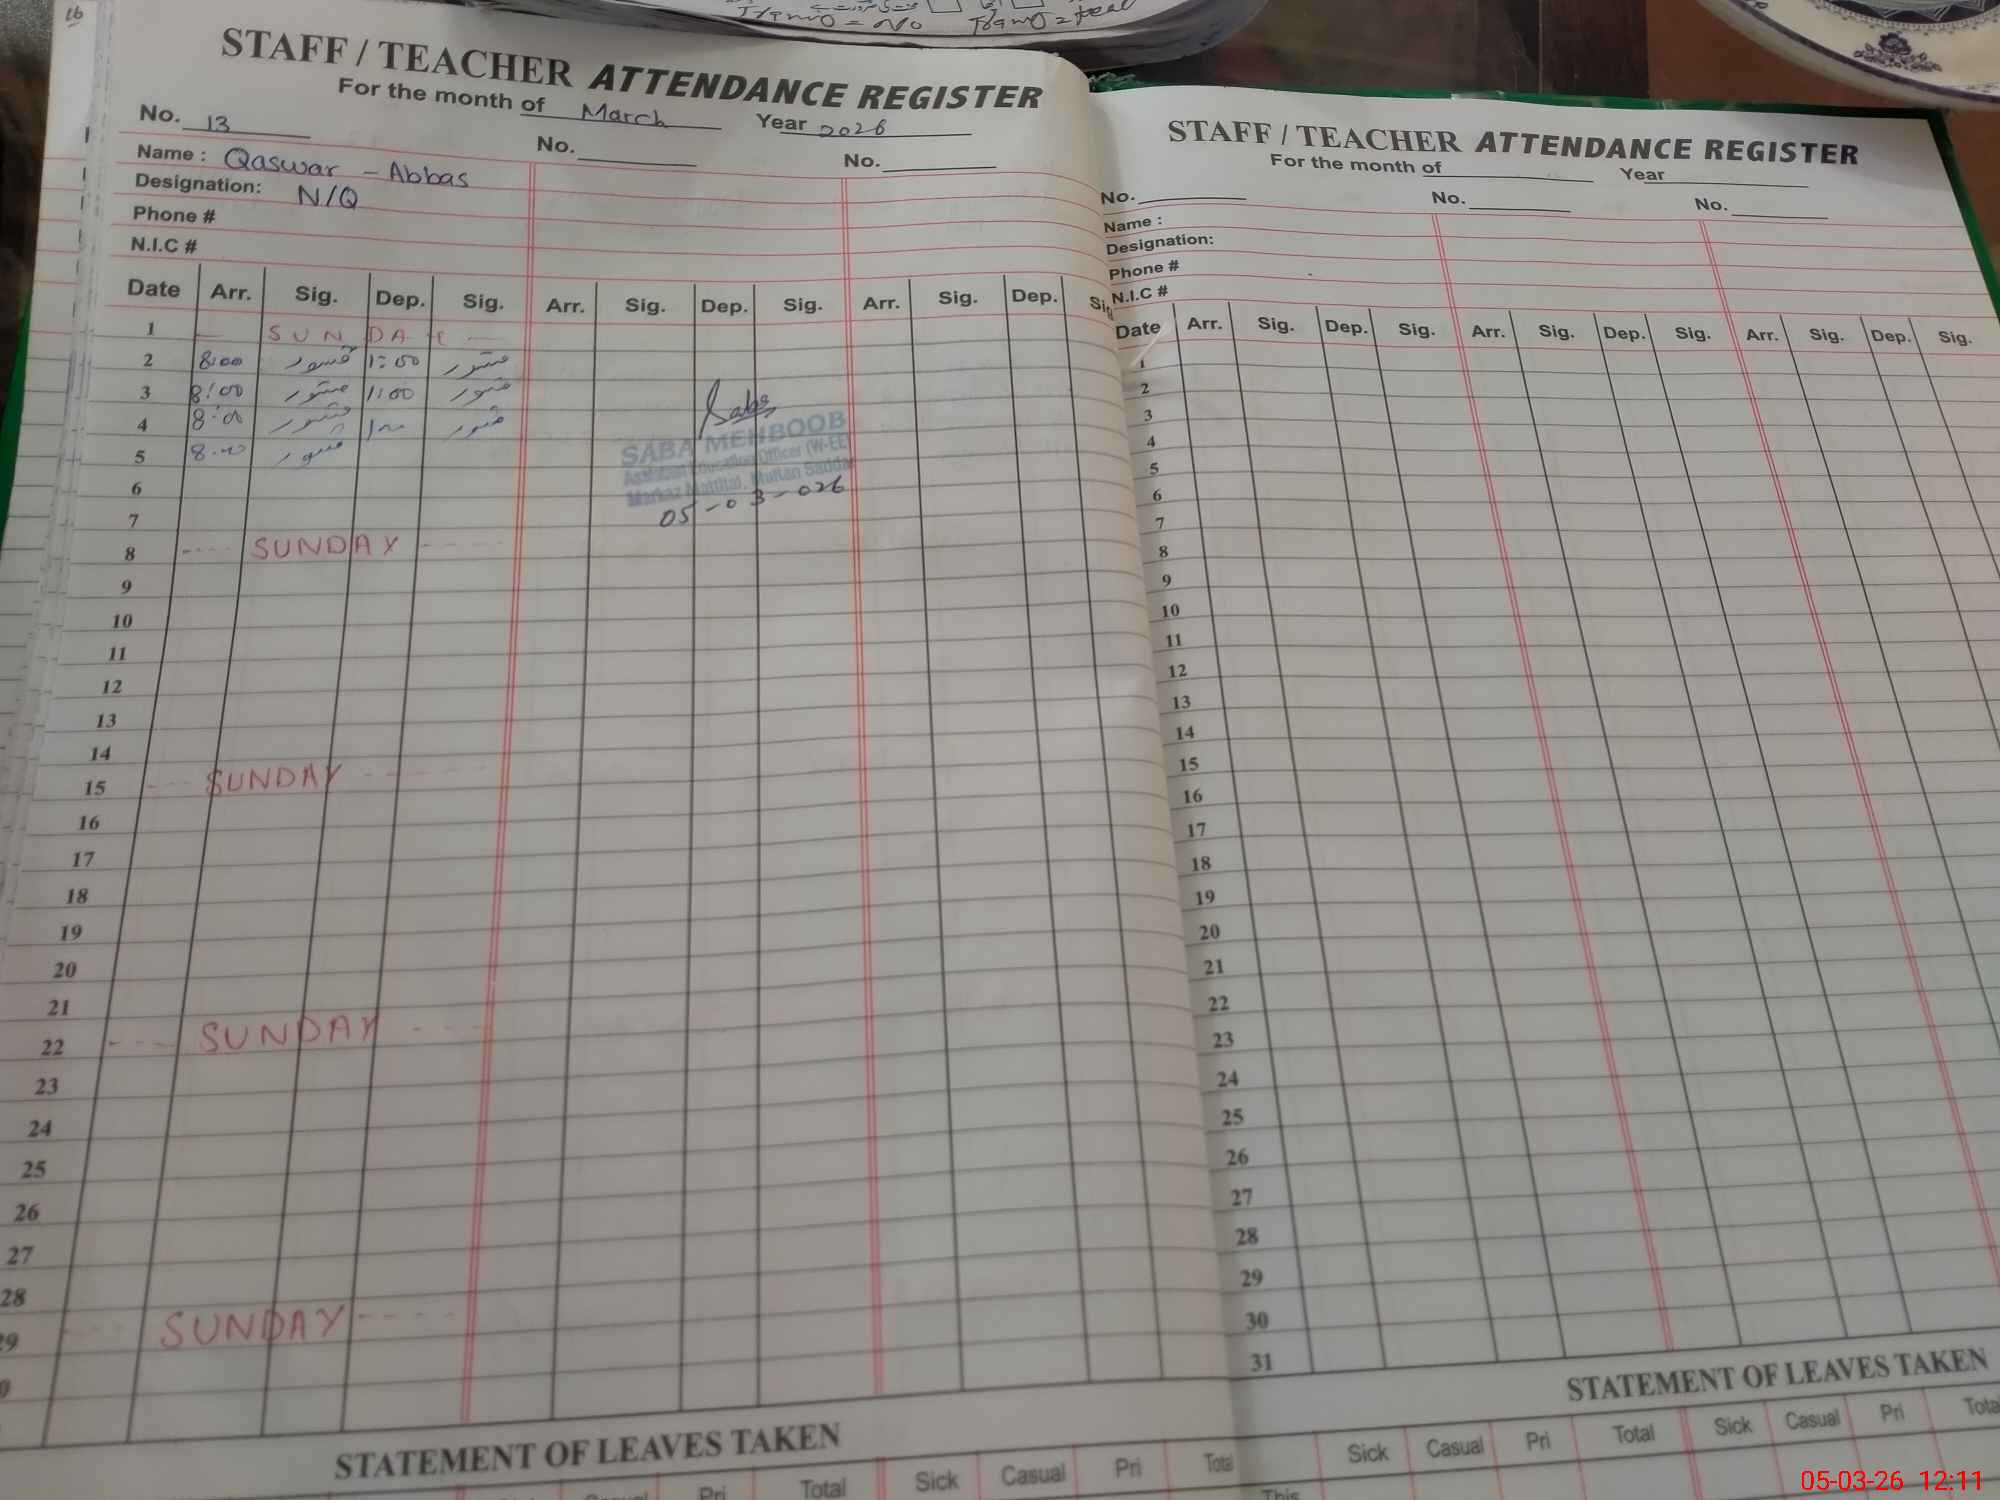 16
Tramo = No Tramo = teal
STAFF / TEACHER ATTENDANCE REGISTER
For the month of March Year 2026
No. 13 No. No.
Name : Qaswar - Abbas
Designation: N/Q
Phone #
N.I.C #
Date Arr. Sig. Dep. Sig. Arr. Sig. Dep. Sig. Arr. Sig. Dep. Sig
1 SUNDAY
2 8:00 قسور 1:00 قسور
3 8:00 قسور 1:00 قسور
4 8:00 قسور 1:00 قسور
5 8:00 قسور
6
7
8 ---- SUNDAY ----
9
10
11
12
13
14
15 --- SUNDAY ---
16
17
18
19
20
21
22 --- SUNDAY ---
23
24
25
26
27
28
29 --- SUNDAY ----
Saba
SABA MEHBOOB
Assistant Education Officer (W-EE)
Markaz Mattital, Multan Saddar
05-03-026
STATEMENT OF LEAVES TAKEN
Casual Pri Total Sick Casual Pri Total
STAFF / TEACHER ATTENDANCE REGISTER
For the month of Year
No. No. No.
Name :
Designation:
Phone #
N.I.C #
Date Arr. Sig. Dep. Sig. Arr. Sig. Dep. Sig. Arr. Sig. Dep. Sig.
1
2
3
4
5
6
7
8
9
10
11
12
13
14
15
16
17
18
19
20
21
22
23
24
25
26
27
28
29
30
31
STATEMENT OF LEAVES TAKEN
Sick Casual Pri Total Sick Casual Pri Total
This
05-03-26 12:11